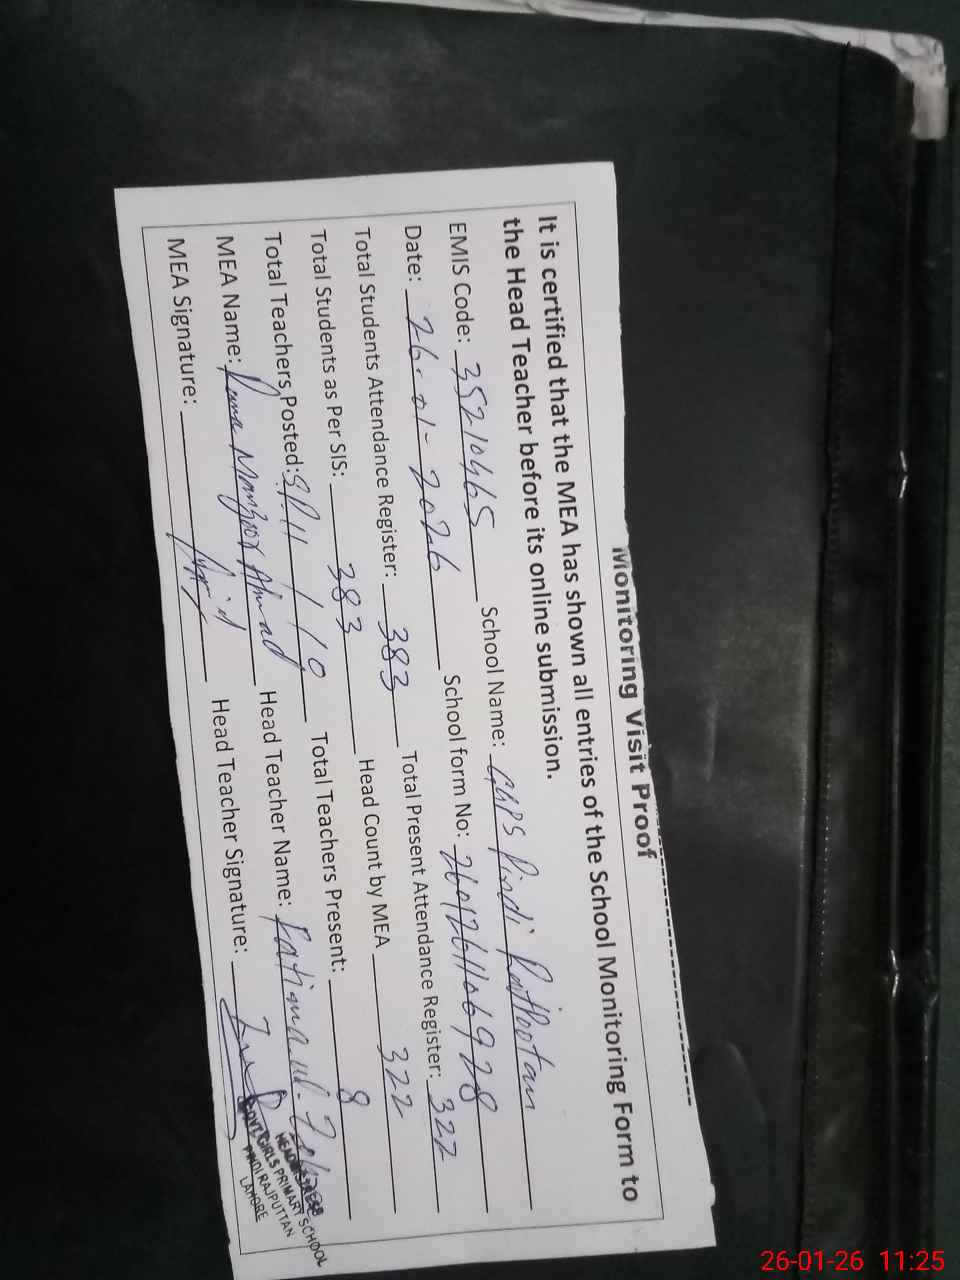 Monitoring Visit Proof
It is certified that the MEA has shown all entries of the School Monitoring Form to
the Head Teacher before its online submission.
EMIS Code: 35210465 School Name: GGPS Pindi Rajpootan
Date: 26-01-2026 School form No: 2601261106928
Total Students Attendance Register: 383 Total Present Attendance Register: 322
Total Students as Per SIS: 383 Head Count by MEA 322
Total Teachers Posted: 10 Total Teachers Present: 8
MEA Name: Rana Manzoor Ahmad Head Teacher Name:
MEA Signature: Head Teacher Signature:
HEADMISTRESS
GOVT GIRLS PRIMARY SCHOOL
PINDI RAJPUTTAN
LAHORE
26-01-26 11:25